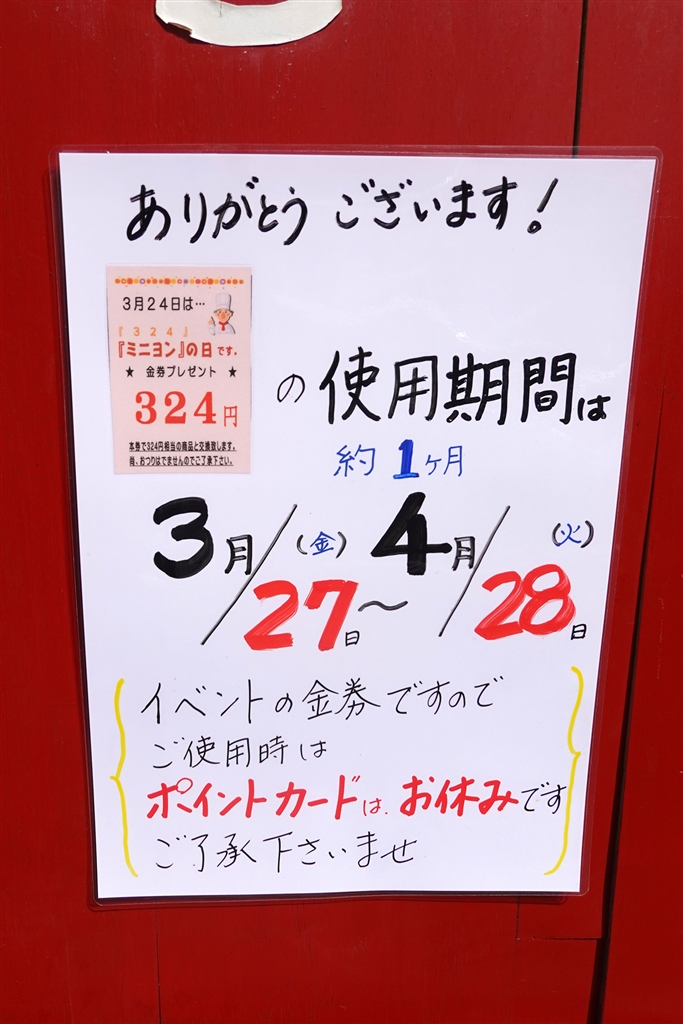 ありがとうございます!
3月24日は…
『324』
『ミニヨン』の日です。
★ 金券プレゼント ★
324円
本券で324円相当の商品と交換致します。
尚、おつりはでませんのでご了承下さい。
の使用期間は
約1ヶ月
3月/27日(金)~4月/28日(火)
イベントの金券ですので
ご使用時は
ポイントカードは、お休みです
ご了承下さいませ